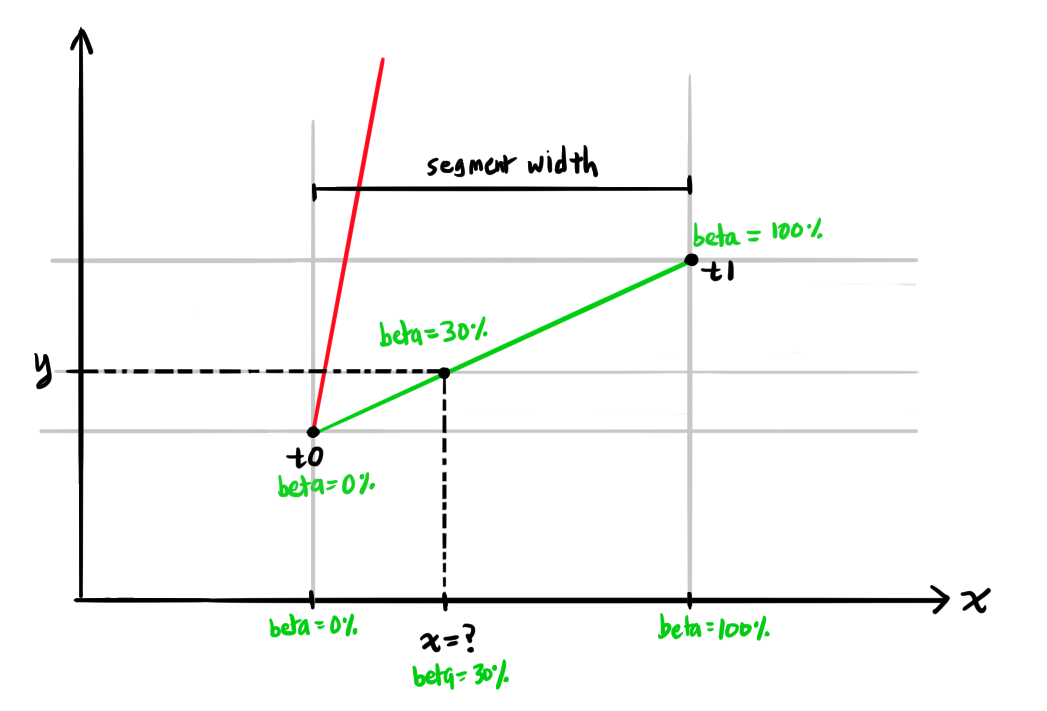 segment width
beta = 100%
t1
beta=30%
y
t0
beta=0%
x
beta=0%
x=?
beta=30%
beta=100%